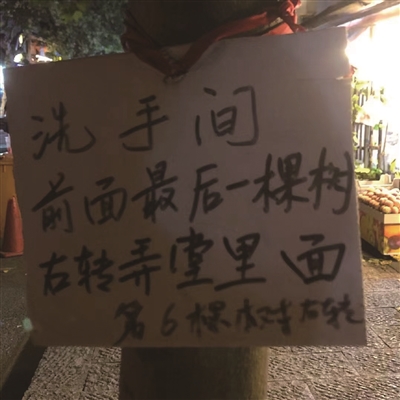 洗手间
前面最后一棵树
右转弄堂里面
第6棵树右转